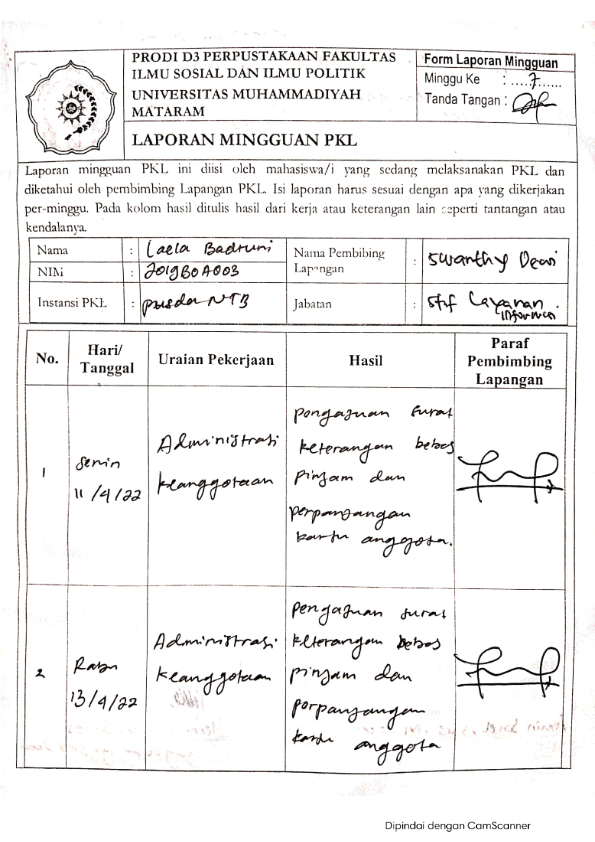 PRODI D3 PERPUSTAKAAN FAKULTAS
ILMU SOSIAL DAN ILMU POLITIK
UNIVERSITAS MUHAMMADIYAH
MATARAM
LAPORAN MINGGUAN PKL
Form Laporan Mingguan
Minggu Ke : .....7......
Tanda Tangan :
Laporan mingguan PKL ini diisi oleh mahasiswa/i yang sedang melaksanakan PKL dan
diketahui oleh pembimbing Lapangan PKL. Isi laporan harus sesuai dengan apa yang dikerjakan
per-minggu. Pada kolom hasil ditulis hasil dari kerja atau keterangan lain seperti tantangan atau
kendalanya.
Nama : Laela Badruni
NIM : 2019B0A003
Instansi PKL : pusda NTB
Nama Pembibing
Lapangan : Swanthy Dewi
Jabatan : Stf Layanan
informasi
No. Hari/ Tanggal Uraian Pekerjaan Hasil Paraf Pembimbing Lapangan
1
Senin
11/4/22
Administrasi
keanggotaan
pengajuan surat
keterangan bebas
pinjam dan
perpanjangan
kartu anggota.
2
Rabu
13/4/22
Administrasi
keanggotaan
pengajuan surat
keterangan bebas
pinjam dan
perpanjangan
kartu anggota
Dipindai dengan CamScanner